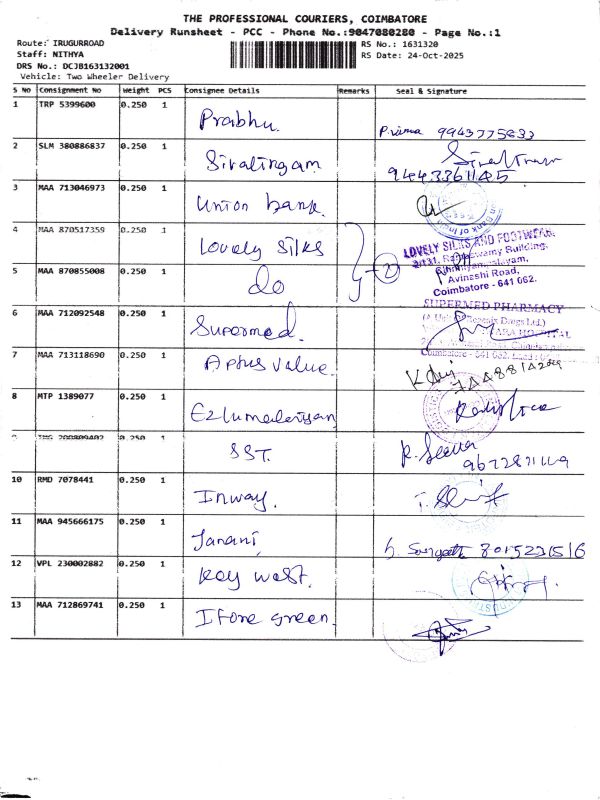 THE PROFESSIONAL COURIERS, COIMBATORE
Delivery Runsheet - PCC - Phone No.:9047080280 - Page No.:1
Route: IRUGURROAD
Staff: NITHYA
DRS No.: DCJB163132001
Vehicle: Two Wheeler Delivery
RS No.: 1631320
RS Date: 24-Oct-2025
S No Consignment No Weight PCS Consignee Details Remarks Seal & Signature
1 TRP 5399600 0.250 1 Prabhu. 9943775833
2 SLM 380886837 0.250 1 Sivalingam 9443361145
3 MAA 713046973 0.250 1 Union bank.
4 MAA 870517359 0.250 1 Lovely Silks
LOVELY SILKS AND FOOTWEAR,
5 MAA 870855008 0.250 1 do 2
Avinashi Road,
Coimbatore - 641 062.
6 MAA 712092548 0.250 1 Supermed.
SUPERMED PHARMACY
7 MAA 713118690 1 Aptus Value.
8 MTP 1389077 0.250 1
0.250 1 SST. R. Seetha
10 RMD 7078441 0.250 1 Inway.
11 MAA 945666175 0.250 1 Janani 8015231516
12 VPL 230002882 0.250 1 Key west.
13 MAA 712869741 0.250 1 Ifore green.